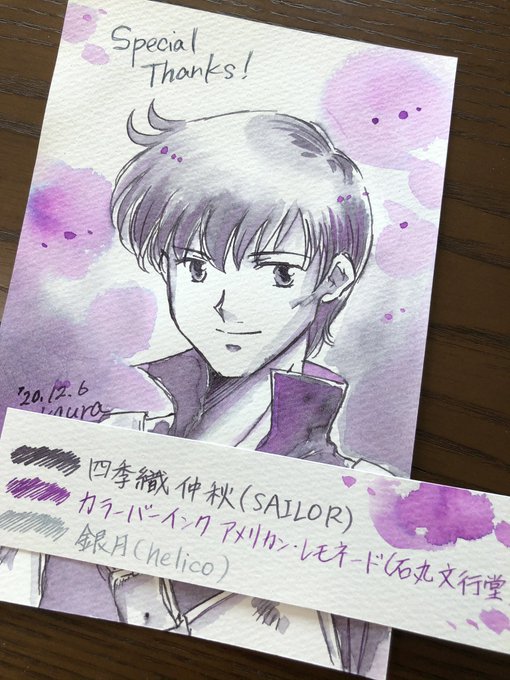 Special
Thanks!
'20.12.6
四季織 仲秋(SAILOR)
カラーバーインク アメリカン・レモネード(石丸文行堂
銀月(helico)